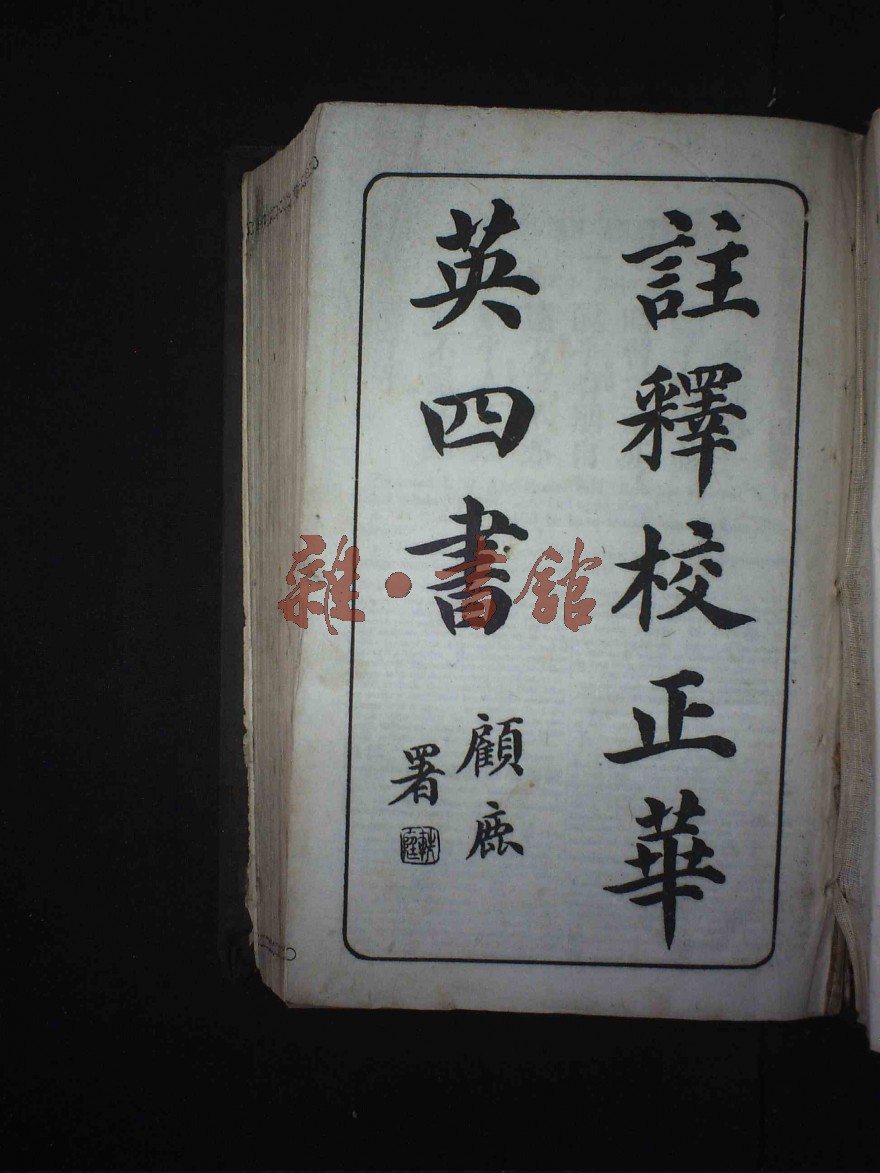 註釋校正華
英四書
顧鹿
署
雜·書舘